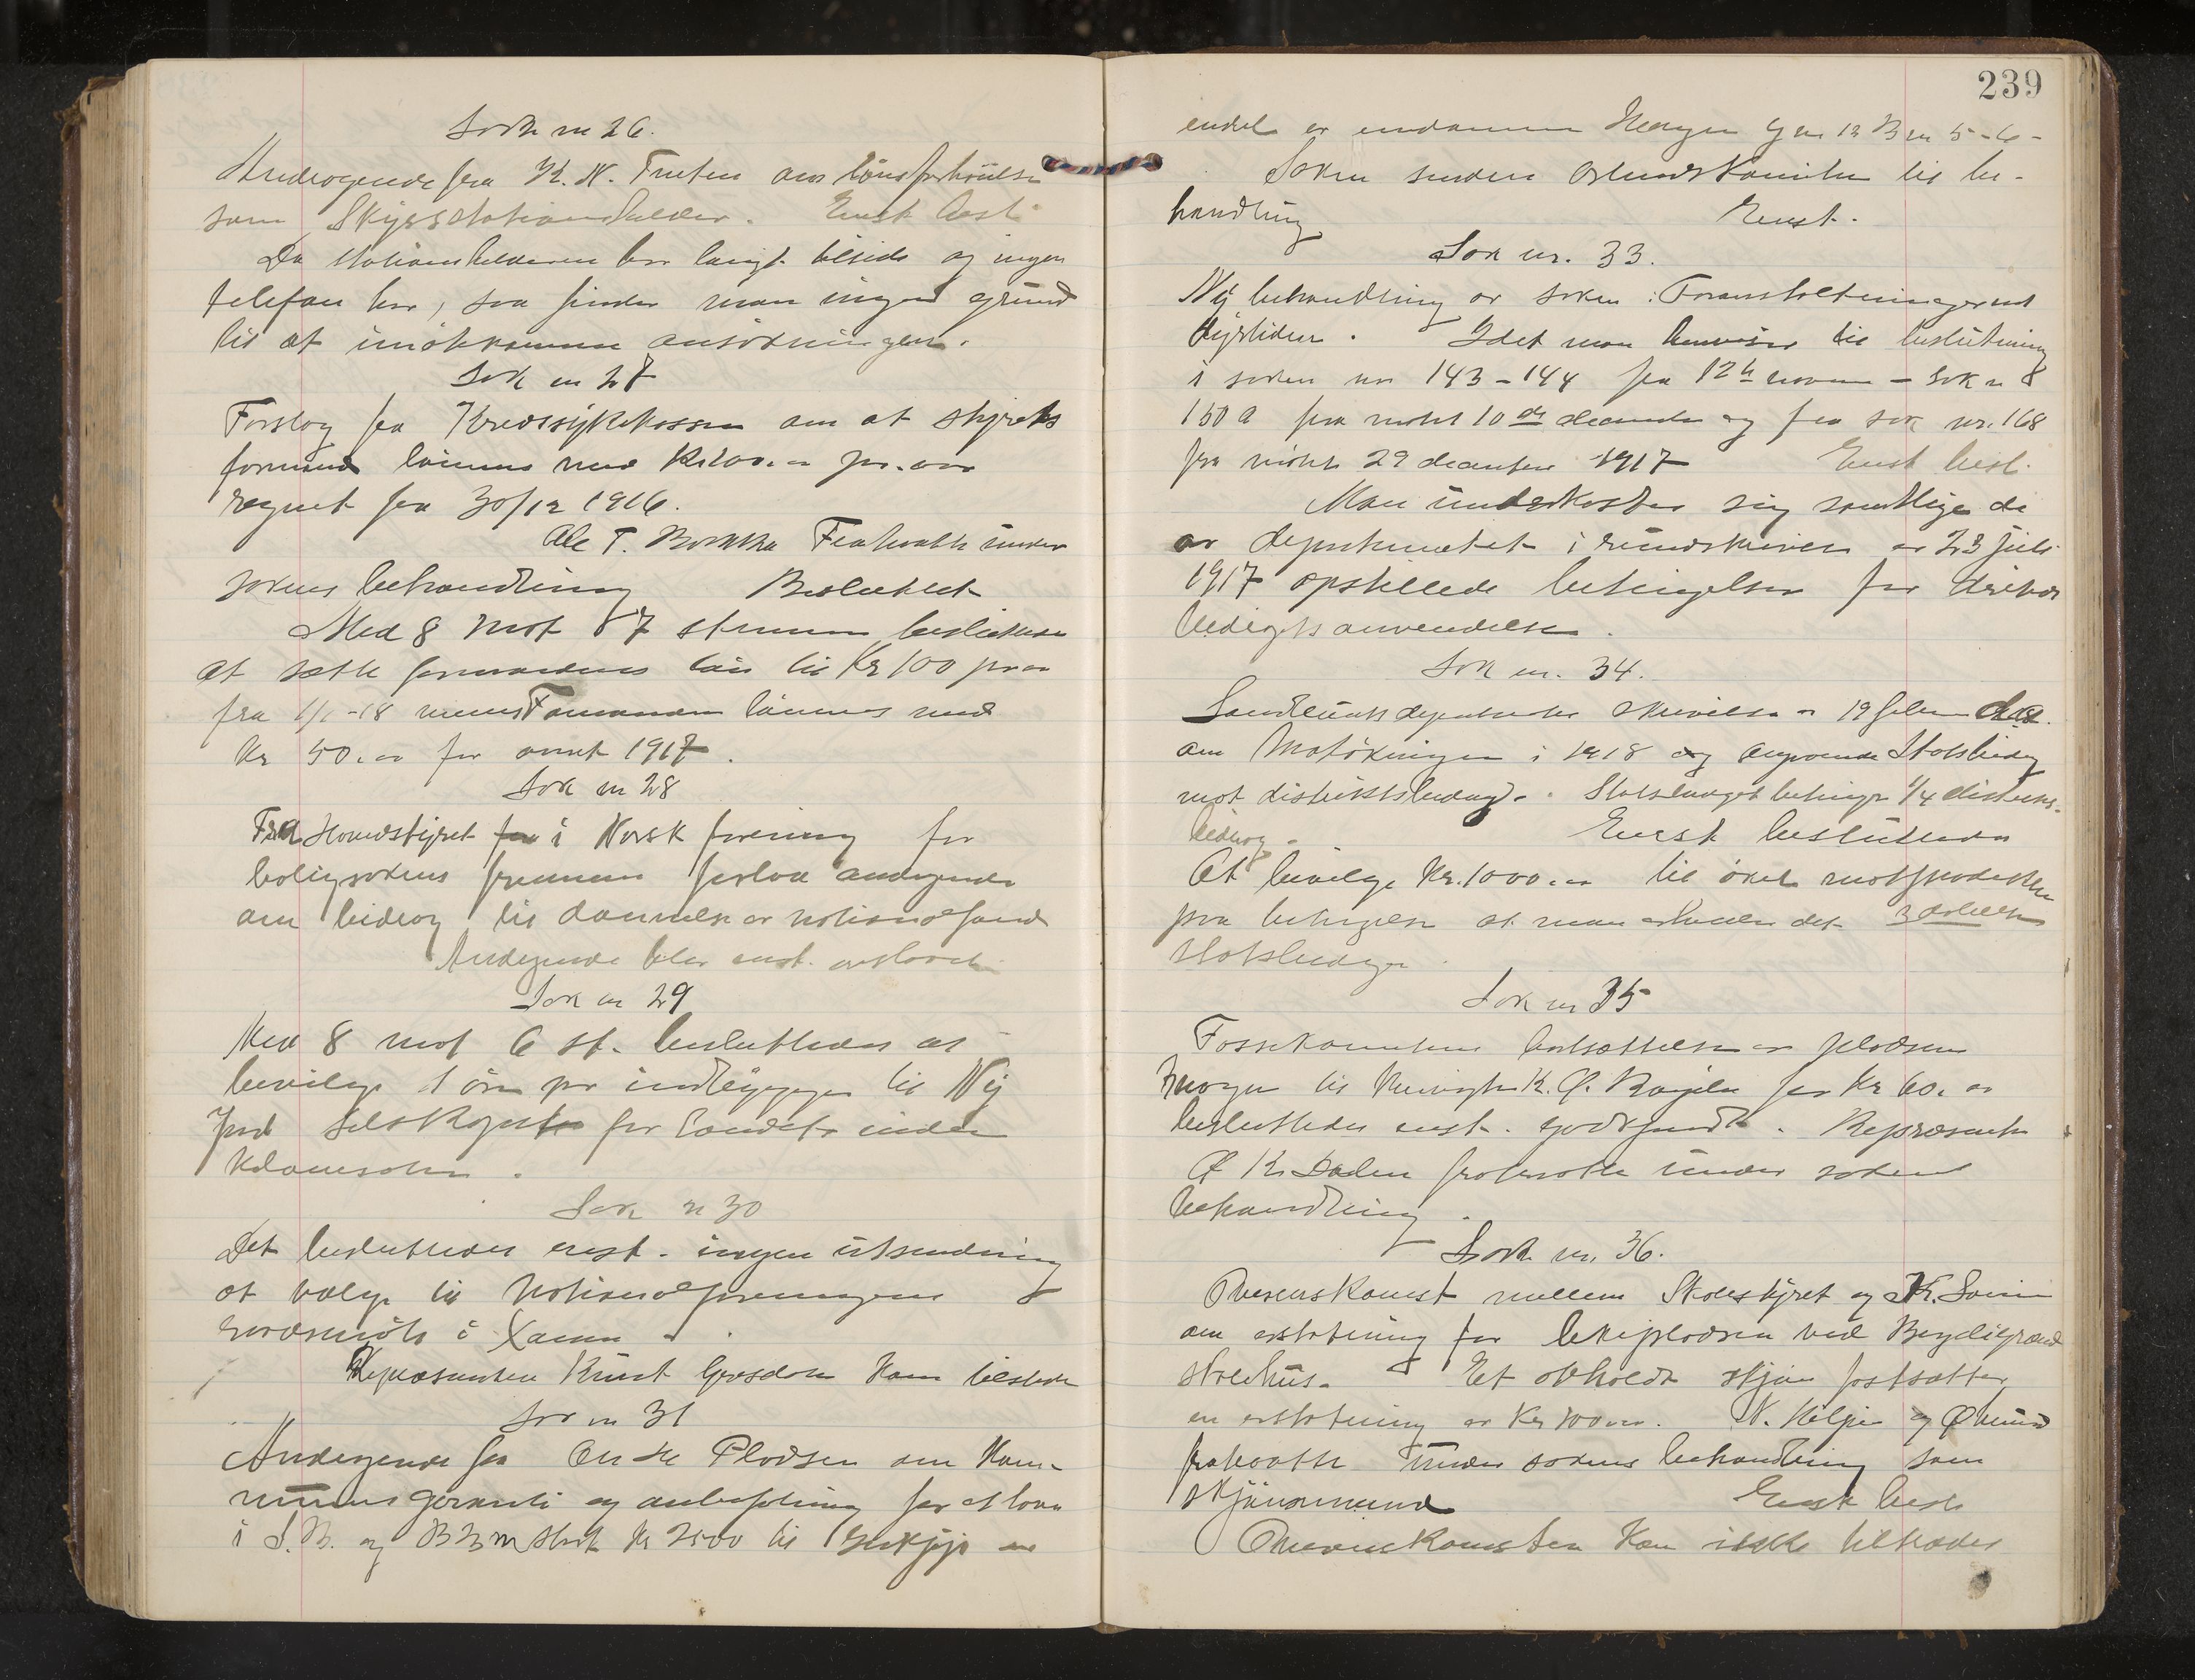 Sak nr 26.
Andragende fra K. N. Truten om lønsforhøielse
som Skysstationsholder. Enst besl.
Da stationsholderen bor langt tilside og ingen
telefon har, saa finder man ingen grund
til at imøtekomme ansøkningen.
Sak nr 27
Forslag fra Kredssykekassen om at styrets
formand lønnes med Kr 100.00 pr. aar
regnet fra 30/12 1916.
Ole T. Fratraatte under
sakens behandling Besluttet
Med 8 mot 7 stemmer besluttedes
at sætte formandens løn til Kr 100 pr aar
fra 1/1-18 mens Formanden lønnes med
Kr 50.00 for aaret 1917.
Sak nr 28
Fra Hovedstyret i Norsk forening for
boligsakens fremme forelaa andragende
om bidrag til dannelse av nationalfond
Andragende blev enst. avslaaet
Sak nr 29
Med 8 mot 6 st. besluttedes at
bevilge 1 øre pr indbygger til Ny
Jord Selskapet for Landets indre
Kolonisation.
Sak nr 30
Det besluttedes enst. ingen utsending
at vælge til Nationalforeningens
landsmøte i
Repræsentanten Knut kom tilstede
Sak nr 31
Andragende fra Plodsen om Kom-
munens garanti og anbefaling for et laan
i S. B. og B stort Kr 2500 til Indkjøp av
239
endel av eiendommen Haugen G nr 12 B nr 5-6-
Saken sendes til be-
handling Enst.
Sak nr. 33.
Ny behandling av saken: Foranstaltninger mot
dyrtiden. Idet man henviser til beslutning
i saken nr 143-144 fra 12te novem - sak nr
150 a fra møtet 10de december og fra sak nr. 168
fra møte 29 december 1917 Enst besl.
Man underkaster sig samtlige de
av departementet i rundskrivelse av 23 juli
1917 opstillede betingelser for
bidragets anvendelse.
Sak nr. 34.
Landbruksdepartementets skrivelse av 19 febr
om Matøkningen i 1918 og angaaende Statsbidrag
mot distriktsbidrag. Statsbidraget betinger 1/4 distrikts-
bidrag. Enst besluttedes
At bevilge Kr. 1000.00 til øket matproduktion
paa betingelse at man erholder det
Statsbidrag.
Sak nr 35
Fossekomiteens bortsættelse av pladsen
Haugen til K. O. for Kr 60.00
besluttedes enst. godkjendt. Repræsentant
O K. Dalen fratraatte under sakens
behandling.
Sak nr. 36.
Overenskomst mellem Skolestyret og K.
om erstatning for lekepladsen ved
skolehus. Et avholdt skjøn fastsætter
en erstatning av Kr 100.00. N. og Ø
fratraatte under sakens behandling som
skjønsmænd Enst besl.
Overenskomsten kan ikke tiltrædes